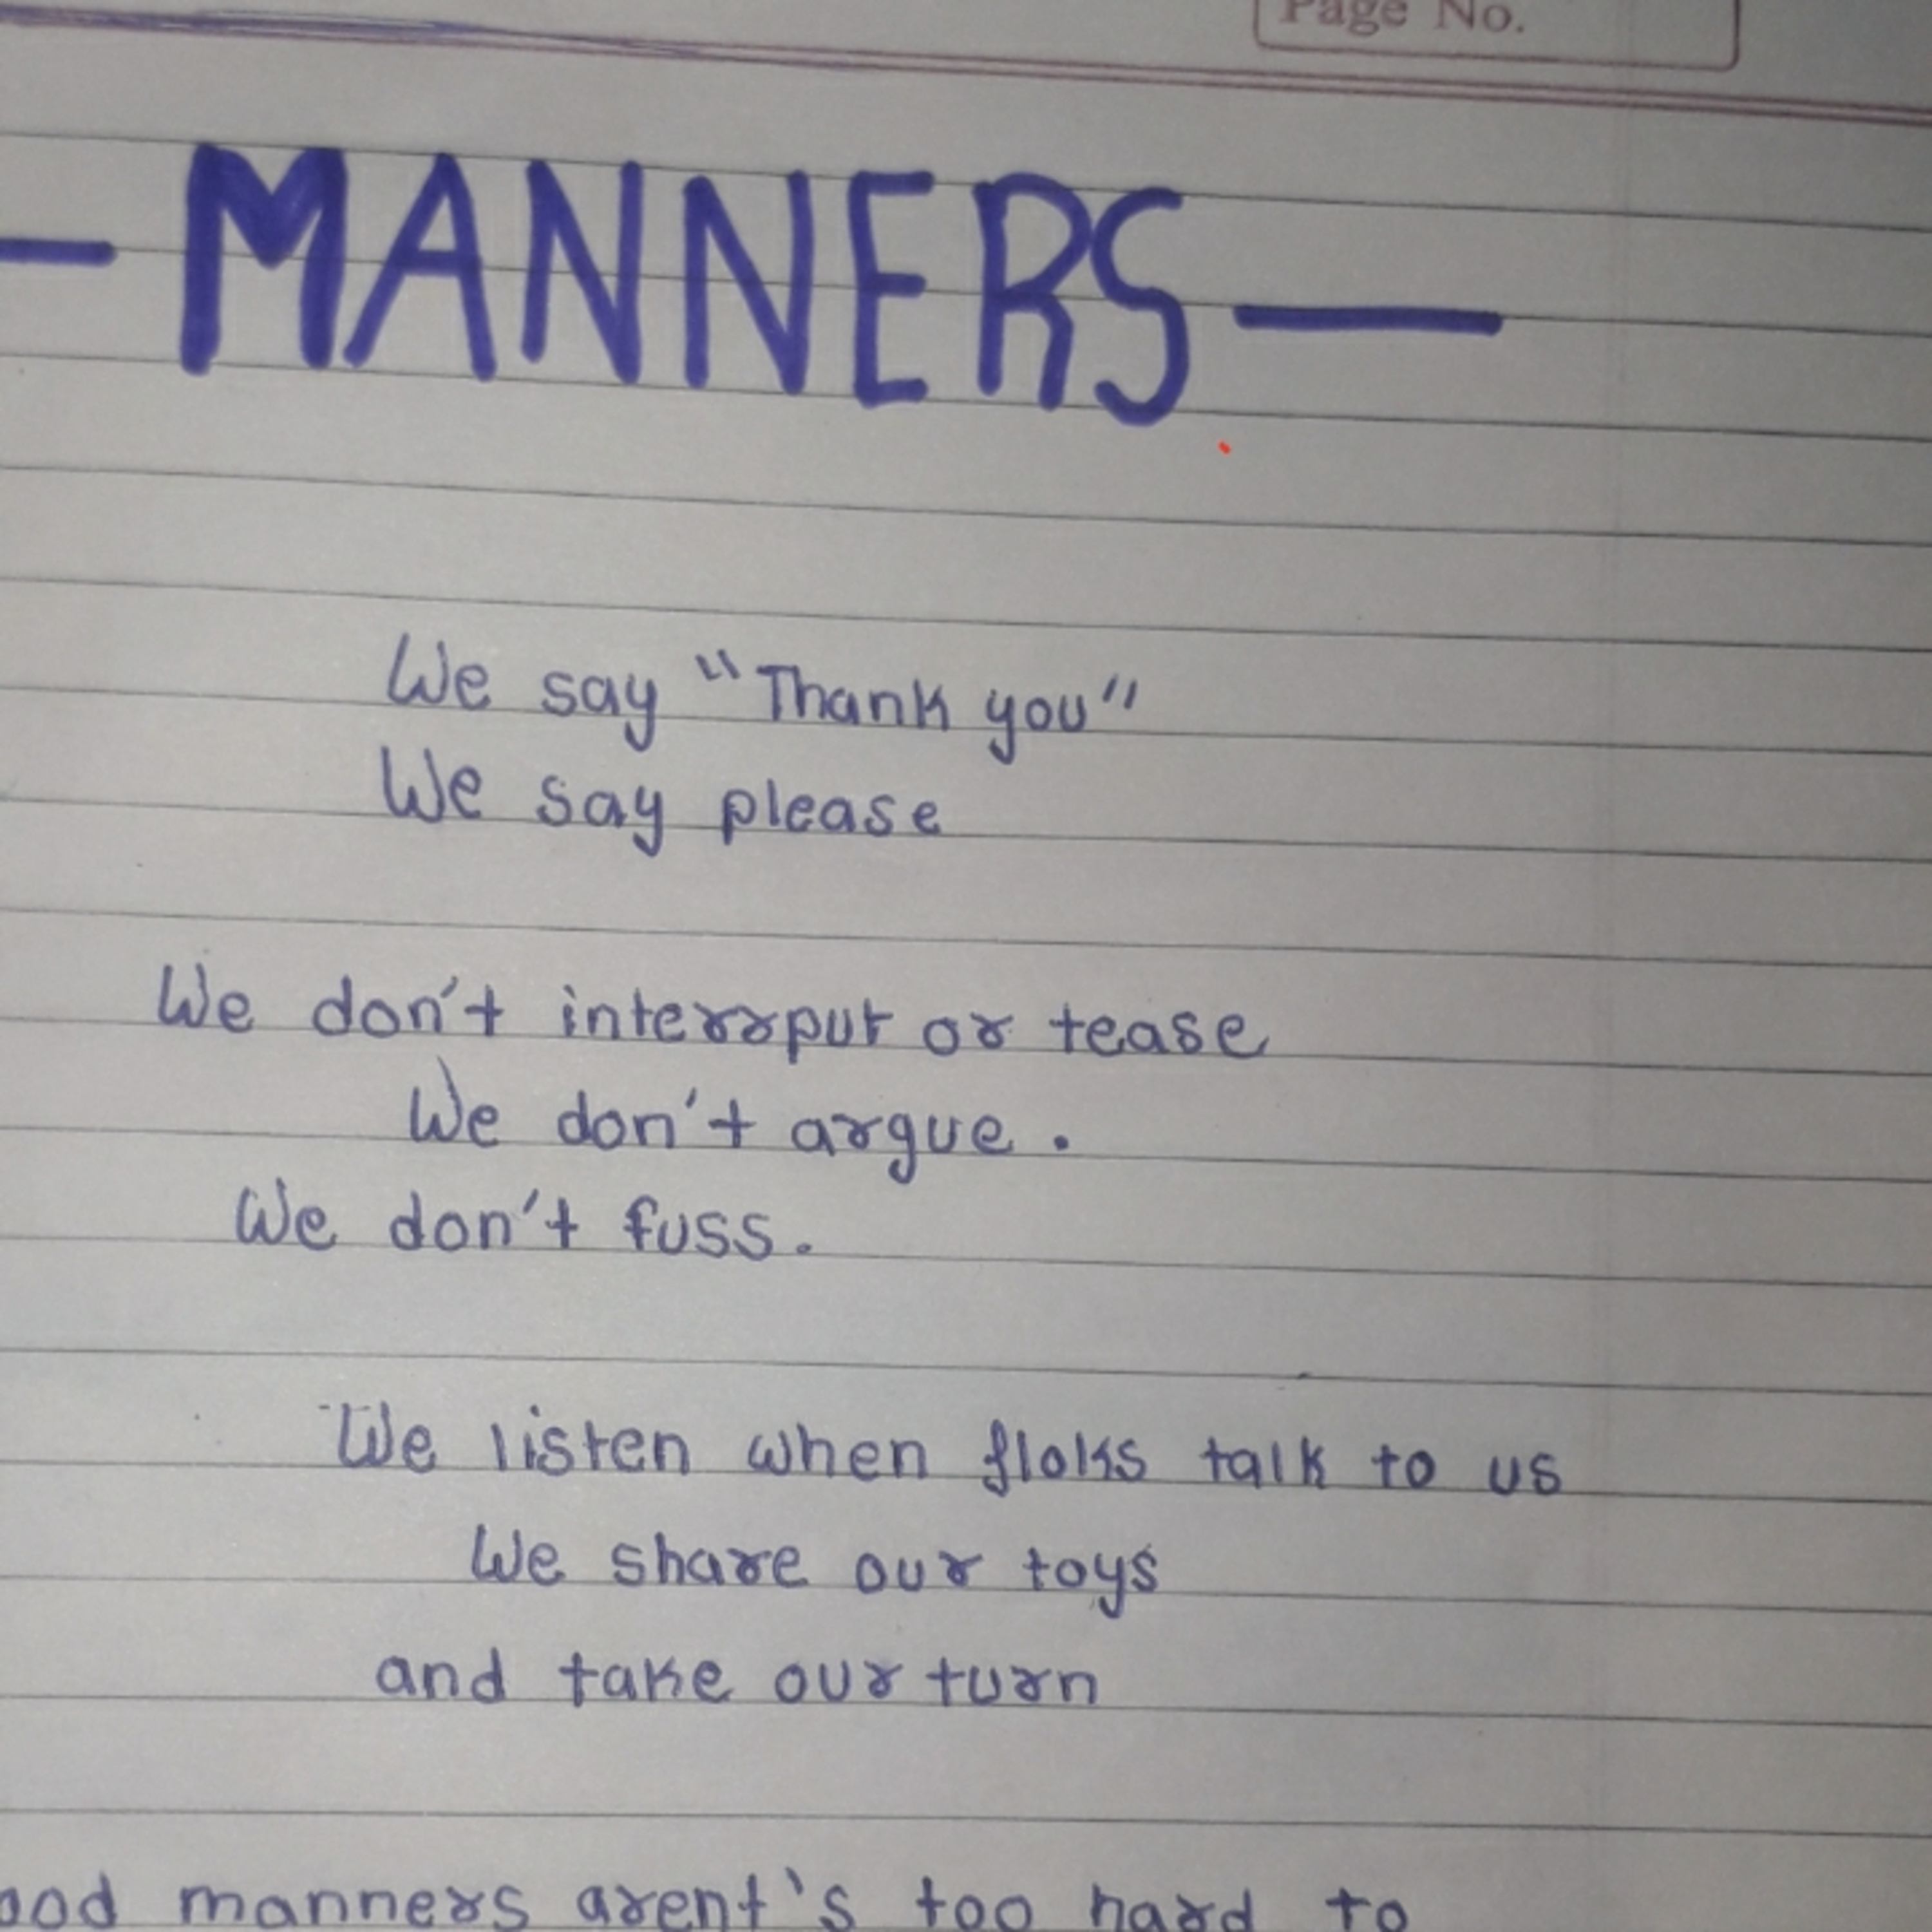 Page No.
— MANNERS —
We say "Thank you"
We say please
We don't interrput or tease
We don't argue.
We don't fuss.
We listen when floks talk to us
We share our toys
and take our turn
ood manners arent's too hard to